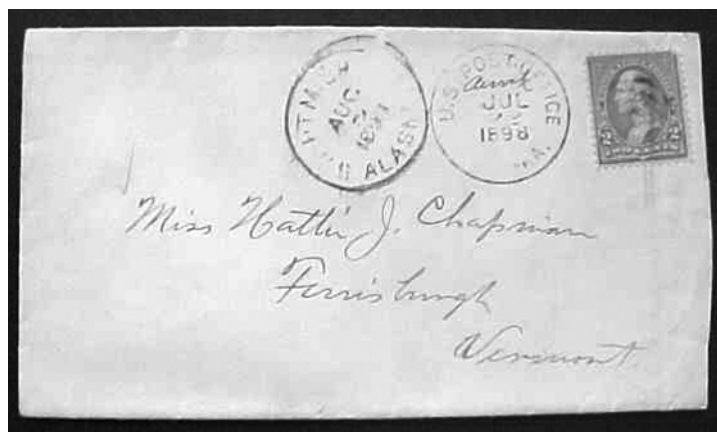 ST. MICH
AUG
1898
ALASK
U.S. POST OFFICE
Anvik
JUL
1898
KA.
Miss Hattie J. Chapman
Ferrisburgh
Vermont.